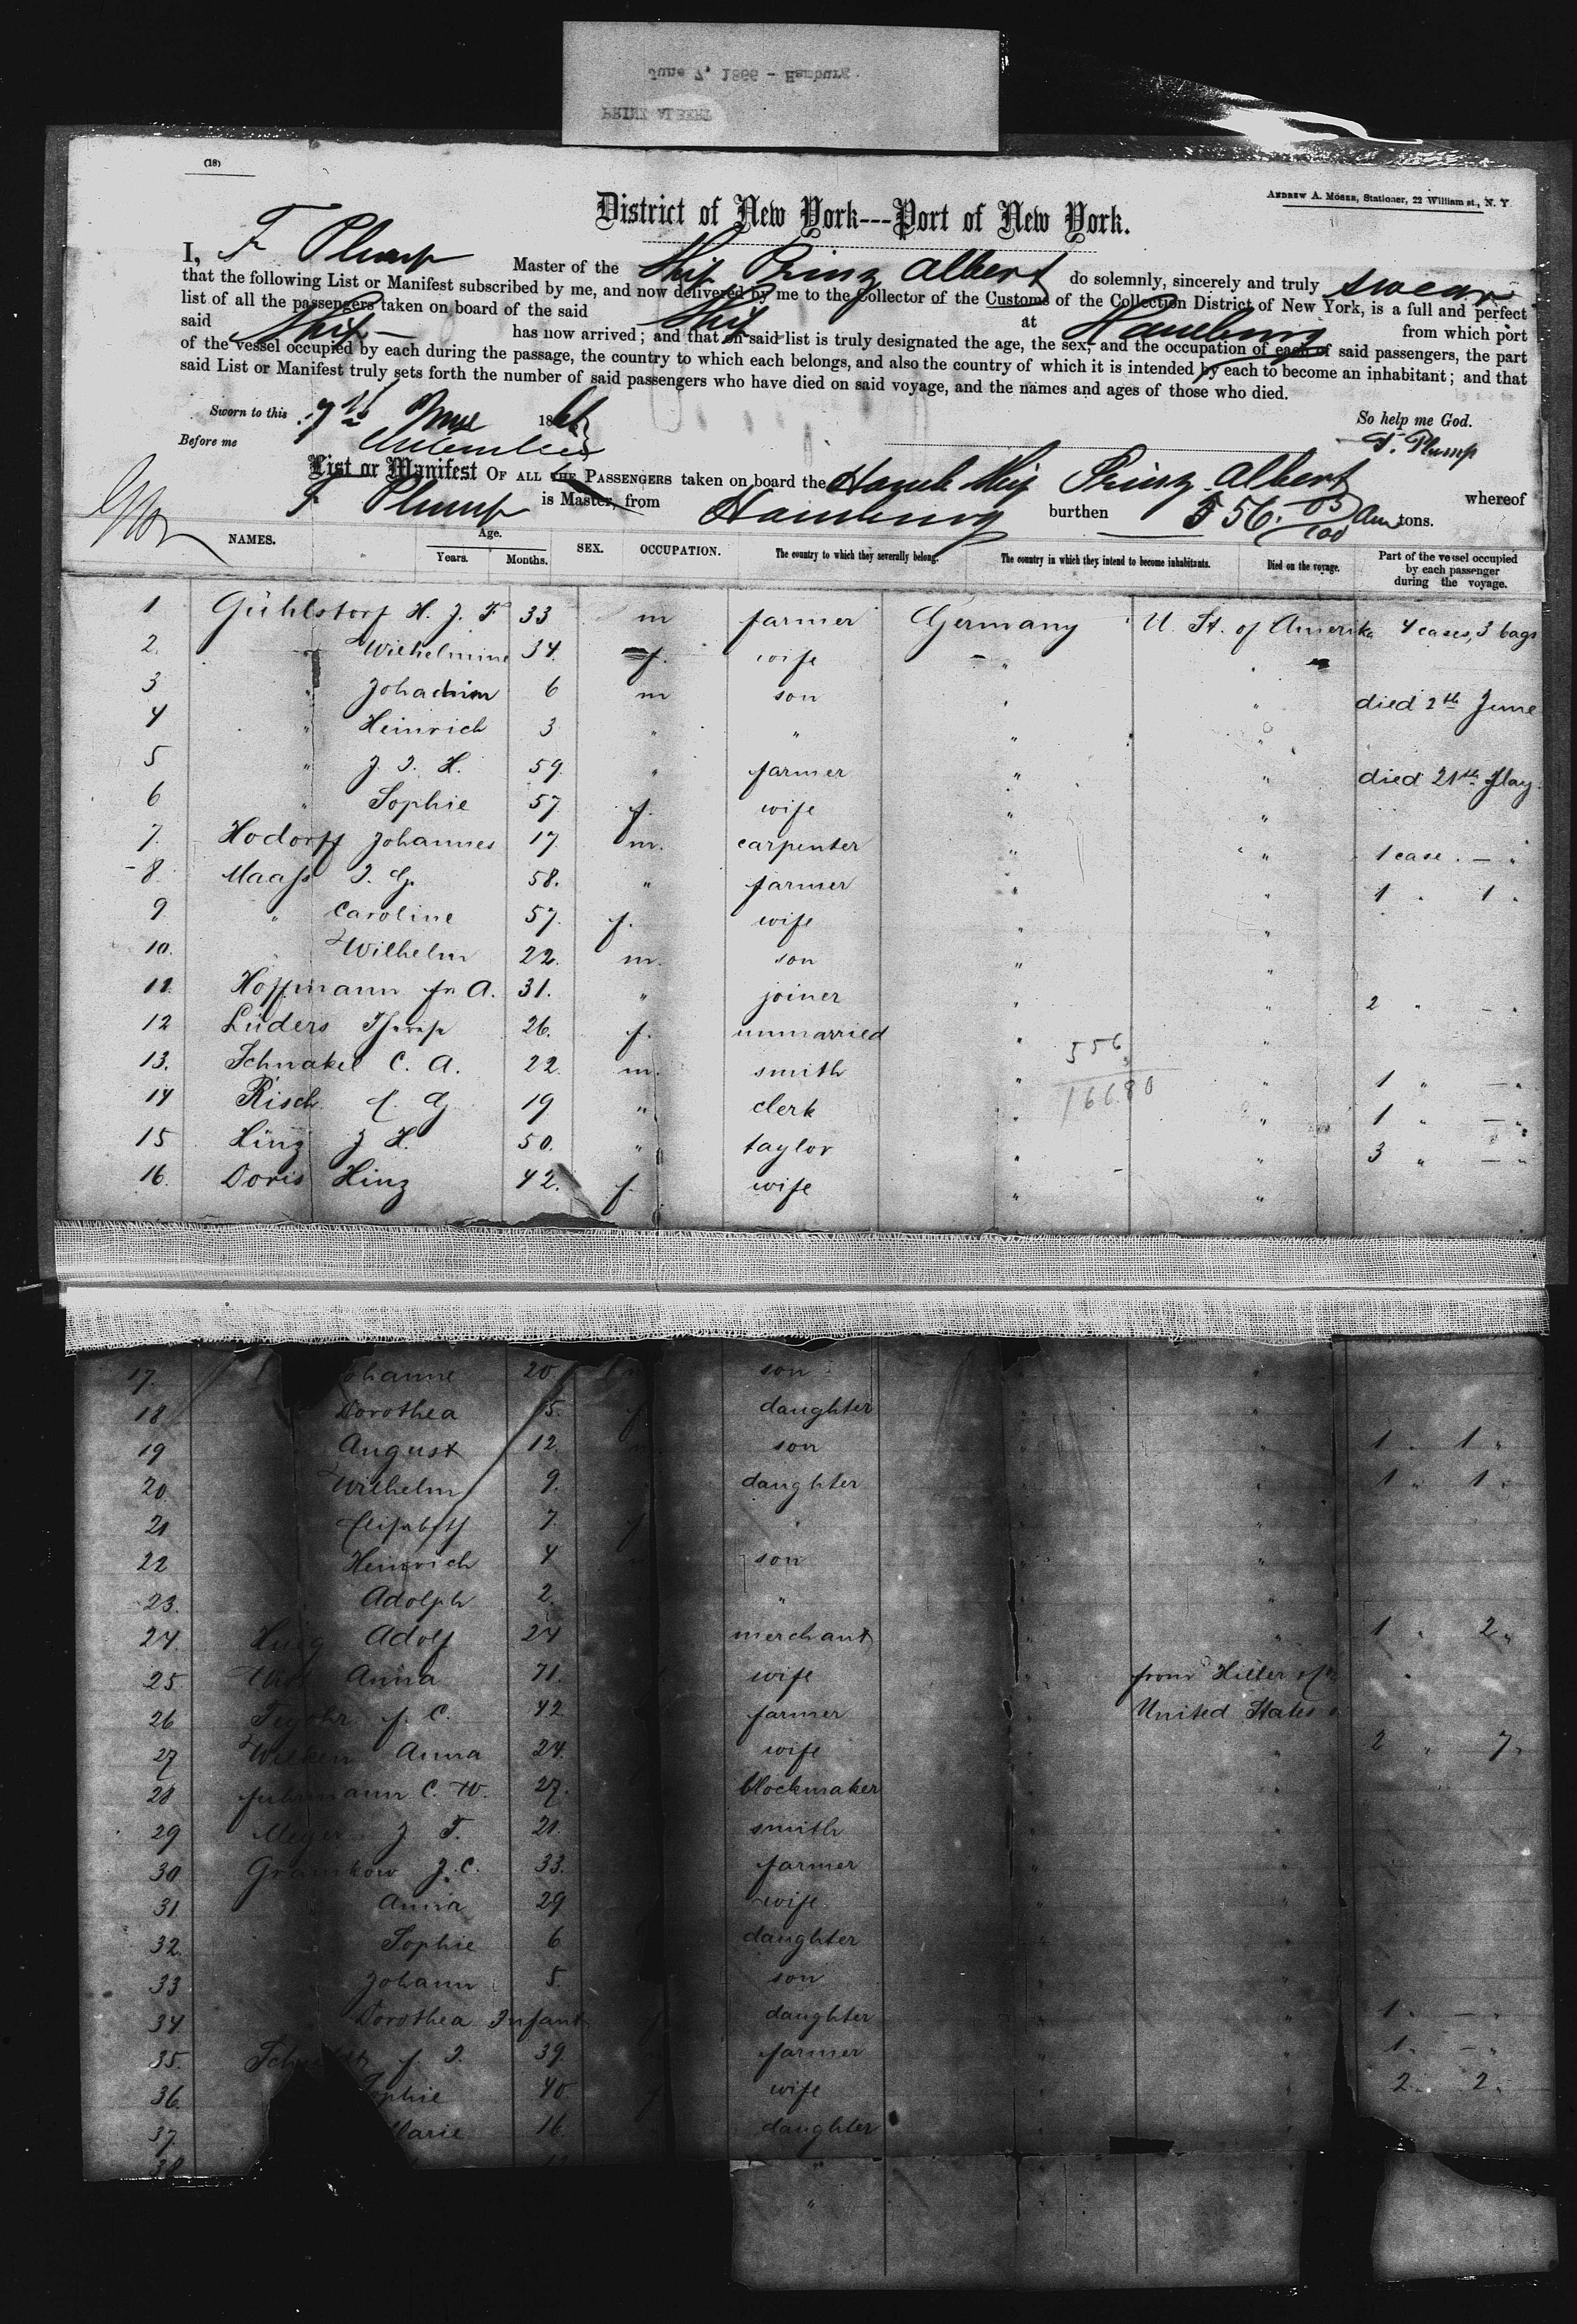 June 7, 1866 - Hamburg.
PRINZ ALBERT
(18)
ANDREW A. MOSER, Stationer, 22 William st., N. Y
District of New York---Port of New York.
I, F Plump Master of the Ship Prinz Albert do solemnly, sincerely and truly swear
that the following List or Manifest subscribed by me, and now delivered by me to the Collector of the Customs of the Collection District of New York, is a full and perfect
list of all the passengers taken on board of the said Ship at Hamburg from which port
said Ship has now arrived; and that on said list is truly designated the age, the sex, and the occupation of each of said passengers, the part
of the vessel occupied by each during the passage, the country to which each belongs, and also the country of which it is intended by each to become an inhabitant; and that
said List or Manifest truly sets forth the number of said passengers who have died on said voyage, and the names and ages of those who died.
Sworn to this 7th June 1866 So help me God.
Before me F. Plump
List or Manifest OF ALL THE PASSENGERS taken on board the Hamb Ship Prinz Albert whereof
F Plump is Master, from Hamburg burthen 556. 03/100 tons.
NAMES. Age. Years. Months. SEX. OCCUPATION. The country to which they severally belong. The country in which they intend to become inhabitants. Died on the voyage. Part of the vessel occupied by each passenger during the voyage.
1 Gühlstorf H. J. F 33 m farmer Germany U. St. of Amerika 4 cases, 3 bags
2. " Wilhelmine 34. f. wife " "
3 " Johachim 6 m son " " died 2th June
4 " Heinrich 3 " " " "
5 " J. J. H. 59. " farmer " " died 21th May.
6 " Sophie 57 f. wife " "
7. Hodorff Johannes 17. m. carpenter " " 1 case . — "
8. Maass J. G. 58. " farmer " " 1 . 1 .
9 " Caroline 57. f. wife " "
10. Wilhelm 22. m. son " "
11. Hoffmann A. 31. " joiner " " 2 " — .
12 Lüders 26. f. unmarried " "
13. Schnakel C. A. 22 m. smith " 556 " 1 " — .
14 Risch G 19 " clerk " 16680 " 1 " — .
15 Hinz J H. 50. " taylor " " 3 " — "
16. Doris Hinz 42. f. wife " "
17. ohanne 20 son "
18 Dorothea 15. f daughter "
19 August 12. son " 1 . 1 "
20. Wilhelm 9. daughter " 1 " 1 "
21 Elisabeth 7. "
22 Heinrich 4 son "
23. Adolph 2. " "
24. Adolf 24 merchant " 1 . 2 "
25. Anna 71. wife from
26 C. 42 farmer United States
27 Wilken Anna 24. wife " 2 " 7 "
28 Fuhrmann C. W. 27. blockmaker "
29 Meyer J. F. 21. smith "
30 Gramkow J. C. 33. farmer "
31. Anna 29 wife "
32. Sophie 6 daughter "
33 Johann 5. son "
34 Dorothea Infant daughter " 1 . — .
35. J. 39. farmer " 1 . — "
36. ophie 40 wife " 2 . 2 .
37. Marie 16. daughter
38